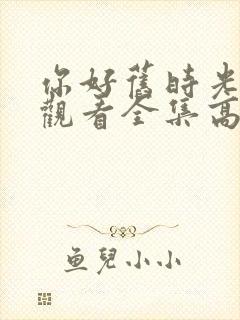 你好舊時光
觀看全集高
魚兒小小